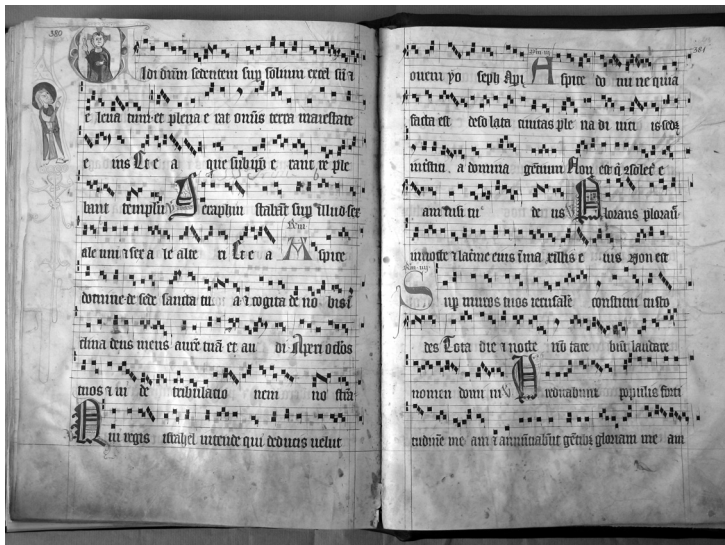 380
Vidi dominum sedentem sup solium excel sum ⁊
e leua tum et plena e rat omis terra maiestate
e ius Et e a que sub ipo e rant re ple
bant templum Seraphin stabant sup illud sex
ale uni ⁊ sex a le alte ri Et e a Aspice
domine de sede sancta tu a ⁊ cogita de no bis i
clina deus meus aure tua et au di Aperi oclos
tuos ⁊ ui de tribulatio nem no stra
Qui regis israhel intende qui deducis uelut
381
ouem yo seph Api Aspice do mi ne quia
facta est desolata ciuitas ple na di uiciis sedet
in tristicia domina gentium Non est q ⁊soletur e
am nisi tu de us Plorans plorauit
in nocte ⁊ lacrime eius in ma xillis e ius Non est
Sup muros tuos ierusalem constitui custo
des Tota die ⁊ nocte no tace bunt laudare
nomen domini Predicabunt populis forti
tudine me am ⁊ annunciabunt gentibus gloriam me am